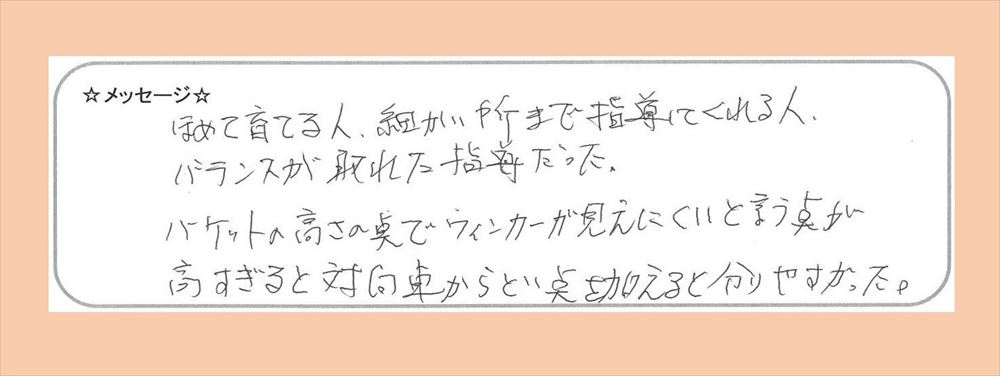 ☆メッセージ☆
ほめて育てる人、細かい所まで指導してくれる人、
バランスが取れた指導だった。
バケットの高さの点でウィンカーが見えにくいと言う点が
高すぎると対向車からとい点加えると分りやすかった。